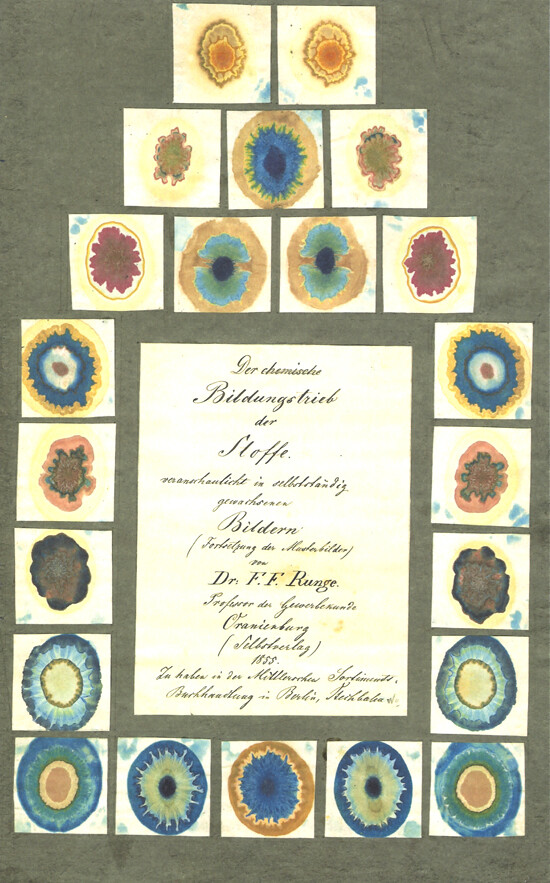 Der chemische
Bildungstrieb
der
Stoffe.
veranschaulicht in selbstständig
gewachsenen
Bildern
(Fortsetzung der Musterbilder)
von
Dr: F. F. Runge.
Professor der Gewerbekunde
Oranienburg
(Selbstverlag)
1855.
Zu haben in der Mittlerschen Sortiments-
Buchhandlung in Berlin, Stechbahn